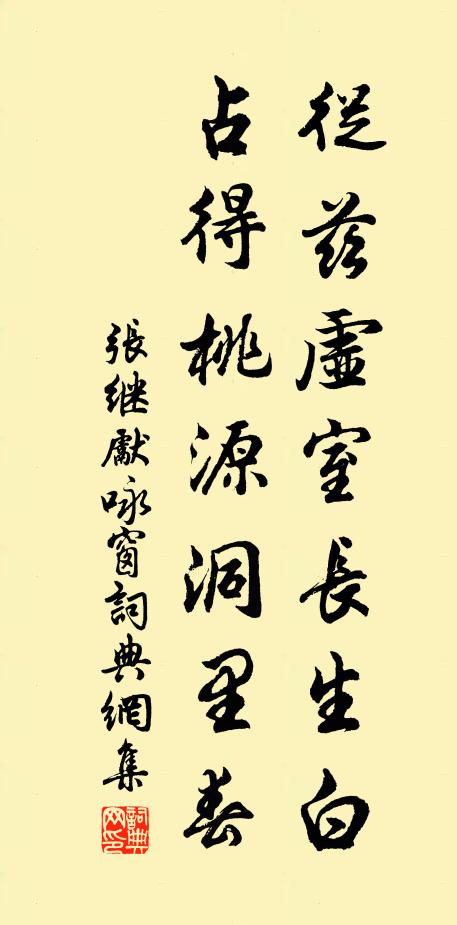 從茲虛室長生白
占得桃源洞里春
張継獻咏窗詞典網集
詞典網印